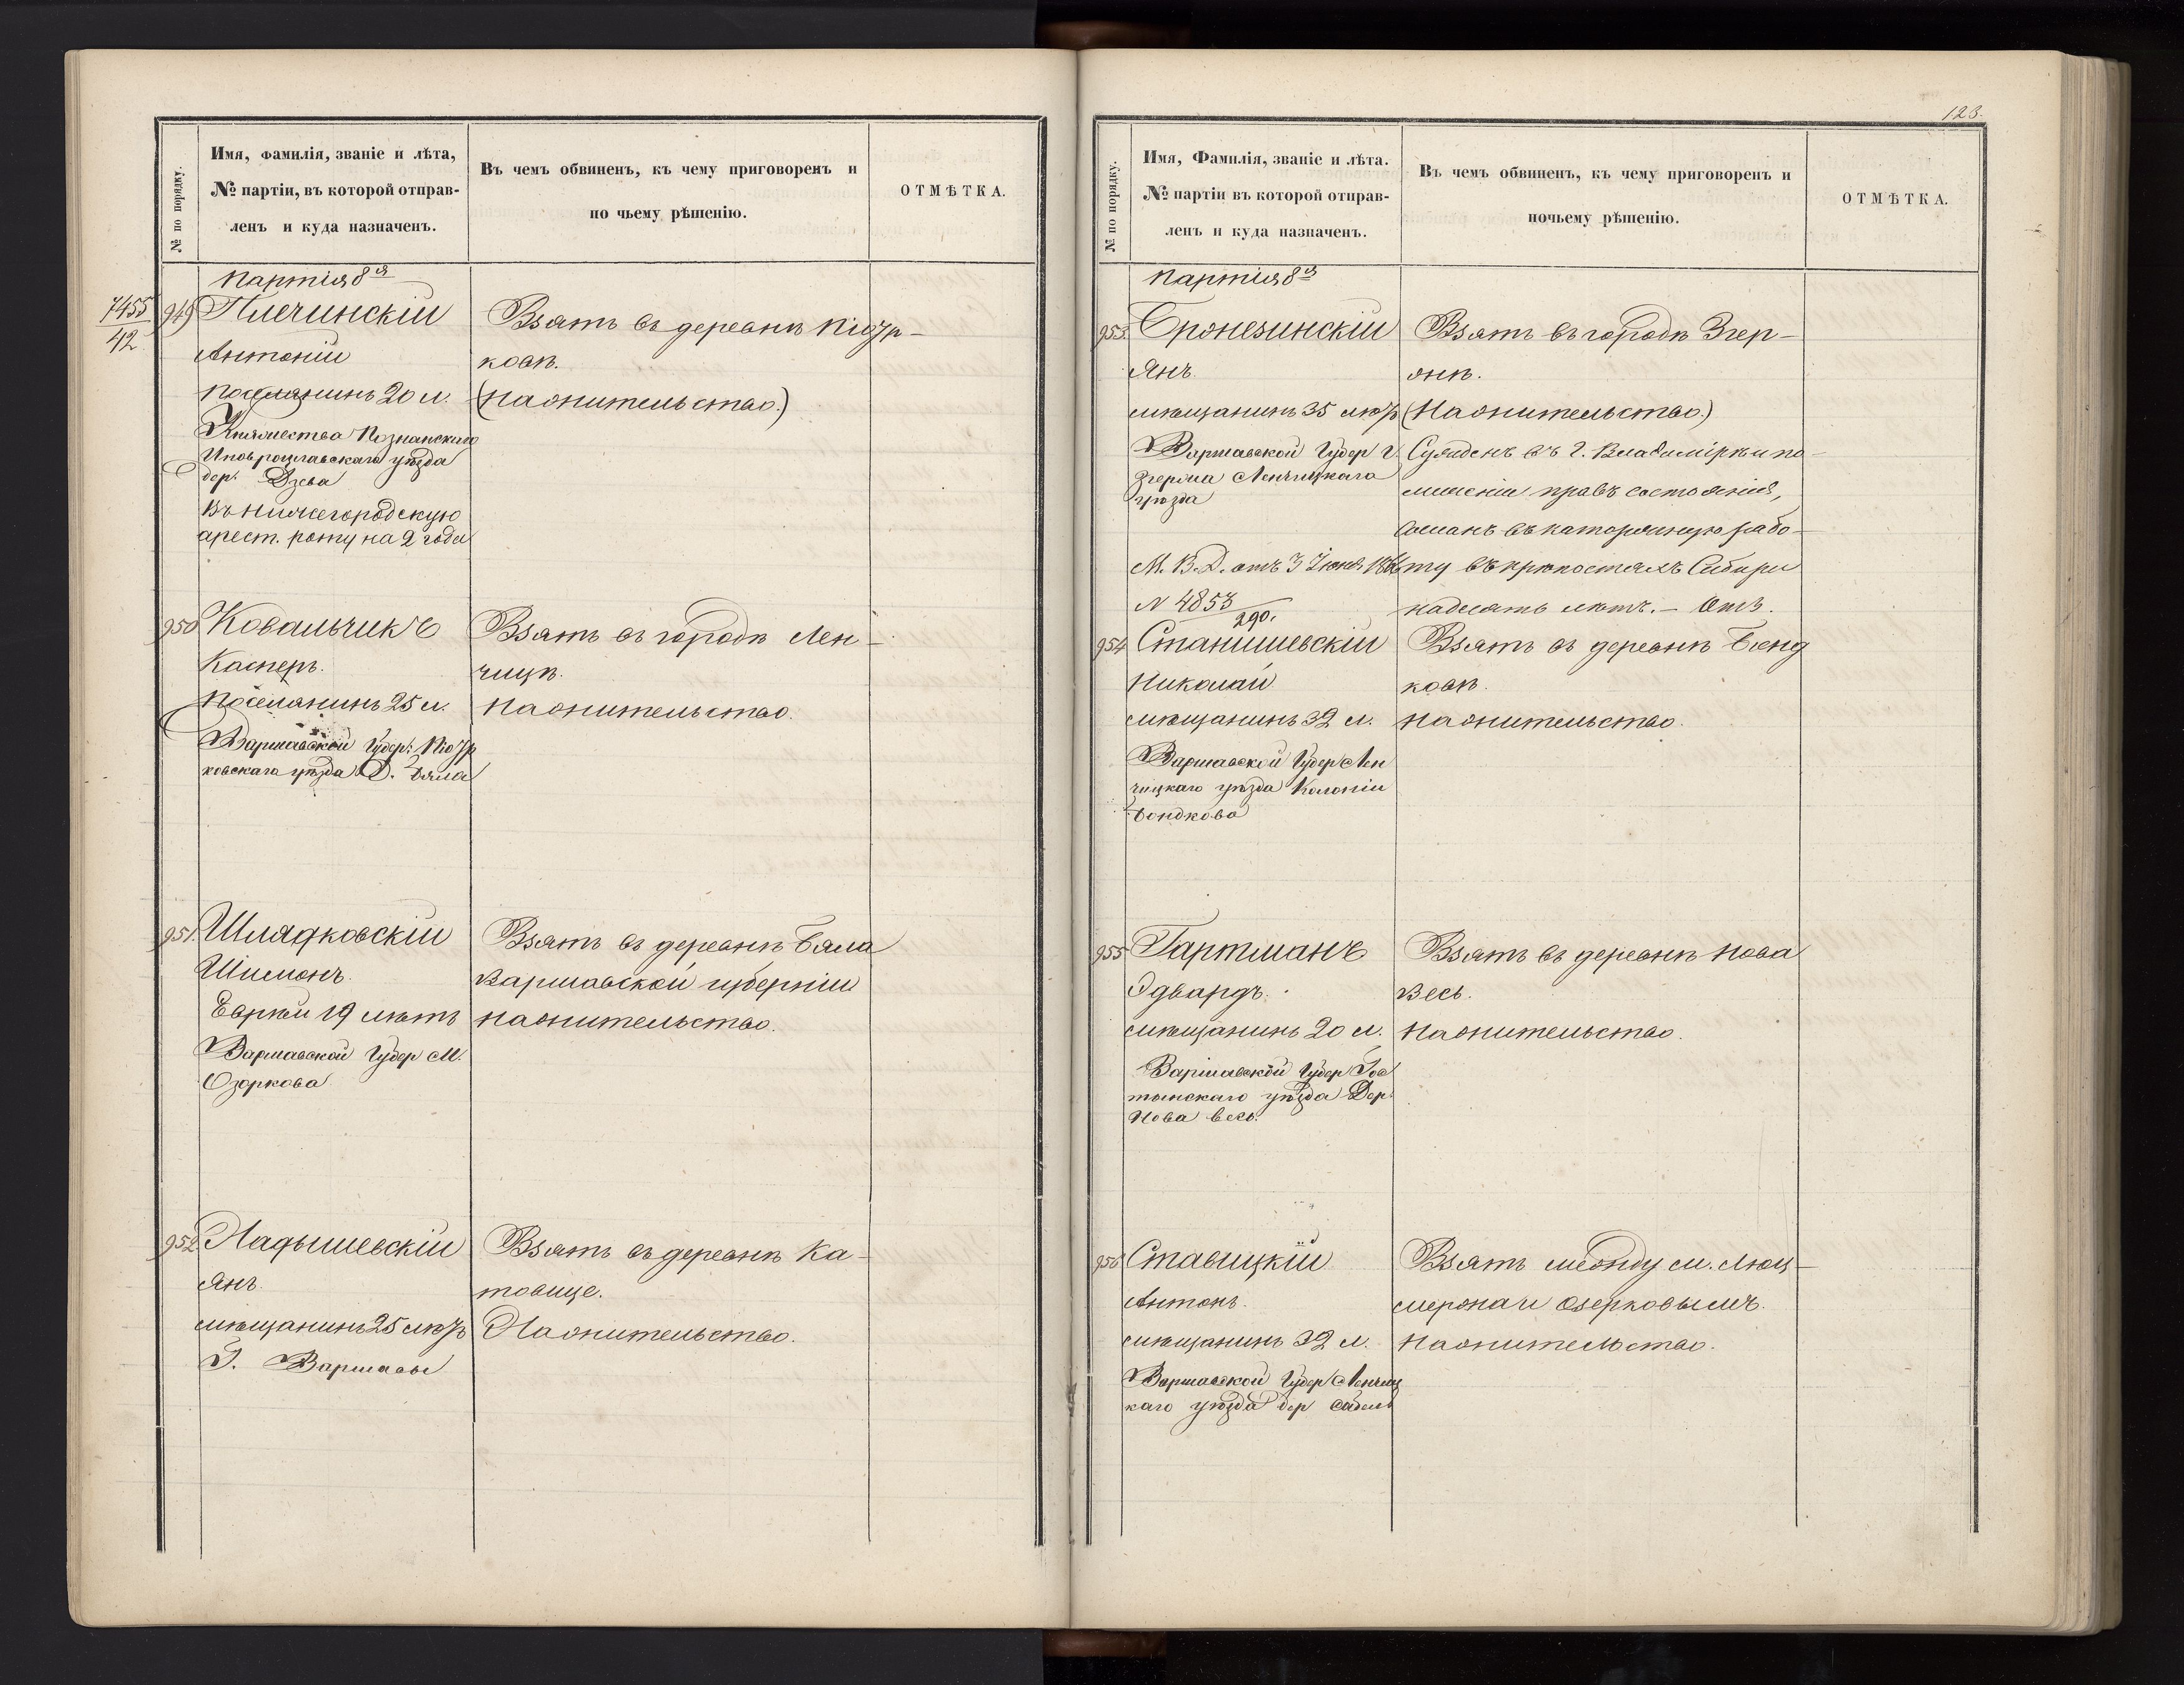 Имя, фамилія, званіе и лѣта,
№ партіи, въ которой отправ-
ленъ и куда назначенъ.
№ по порядку.
Въ чемъ обвиненъ, къ чему приговоренъ и
по чьему рѣшенію.
ОТМѢТКА.
Партія 8я
7455
42
949
Плечинскій
Антоній
поселянинъ 20 л.
Княжества Познанскаго
Иновроцлавскаго уѣзда
дер.
Въ Нижегородскую
арест. роту на 2 года
Взятъ въ деревнѣ Піотр-
ковѣ.
(На жительство.)
950
Ковальчикъ
Касперъ.
Поселянинъ 25 л.
Варшавской Губер: Піотр
ковскаго уѣзда Д. Бяла
Взятъ въ городѣ Лен-
чицѣ.
На жительство.
951.
Шлядковскій
Шимонъ.
Еврей 19 лѣтъ
Варшавской Губер М.
Озоркова
Взятъ въ деревнѣ Бяла
Варшавской губерніи
на жительство.
952.
Ладышевскій
Янъ.
мѣщанинъ 25 лѣтъ
Г. Варшавы
Взятъ въ деревнѣ Ка-
товице.
На жительство.
123.
№ по порядку.
Имя, Фамилія, званіе и лѣта.
№ партіи въ которой отправ-
ленъ и куда назначенъ.
Въ чемъ обвиненъ, къ чему приговоренъ и
почьему рѣшенію.
ОТМѢТКА.
Партія 8я
953.
Бронезинскій
Янъ.
мѣщанинъ 35 лѣтъ
Варшавской Губер г.
Згержа Ленчицкаго
уѣзда
М. В. Д. отъ 3 Іюня 1866
N 4853
290.
Взятъ въ городѣ Згер-
жѣ.
(На жительство.)
Сужденъ въ г. Владимірѣ и по
лишеніи правъ состоянія,
сосланъ въ каторжную рабо-
ту въ крѣпостяхъ Сибири
на десять лѣтъ. —
954
Станишевскій
Николай
мѣщанинъ 32 л.
Варшавской Губер Лен
чицкаго уѣзда Колоніи
Бондкова
Взятъ въ деревнѣ Бенд
ковѣ.
на жительство.
955
Гартманъ
Эдвардъ.
мѣщанинъ 20 л.
Варшавской Губер Гос
тынскаго уѣзда Дер.
Нова весь.
Взятъ въ деревнѣ Нова
Весь.
на жительство.
956
Ставицкій
Антонъ.
мѣщанинъ 32 л.
Варшавской Губер Ленчиц
каго уѣзда дер
Взятъ между м. Люц-
мержа и Озерковымъ.
на жительство.